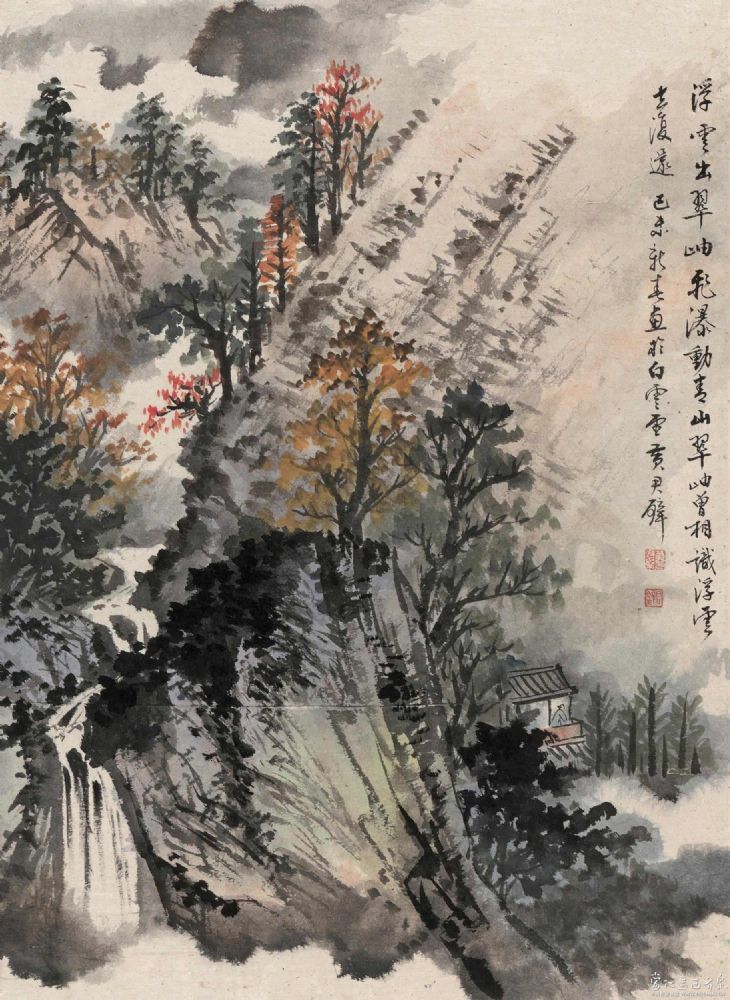 浮雲出翠岫飛瀑動青山翠岫曾相識浮雲
去復還 己未新春畫於白雲堂 黃君璧